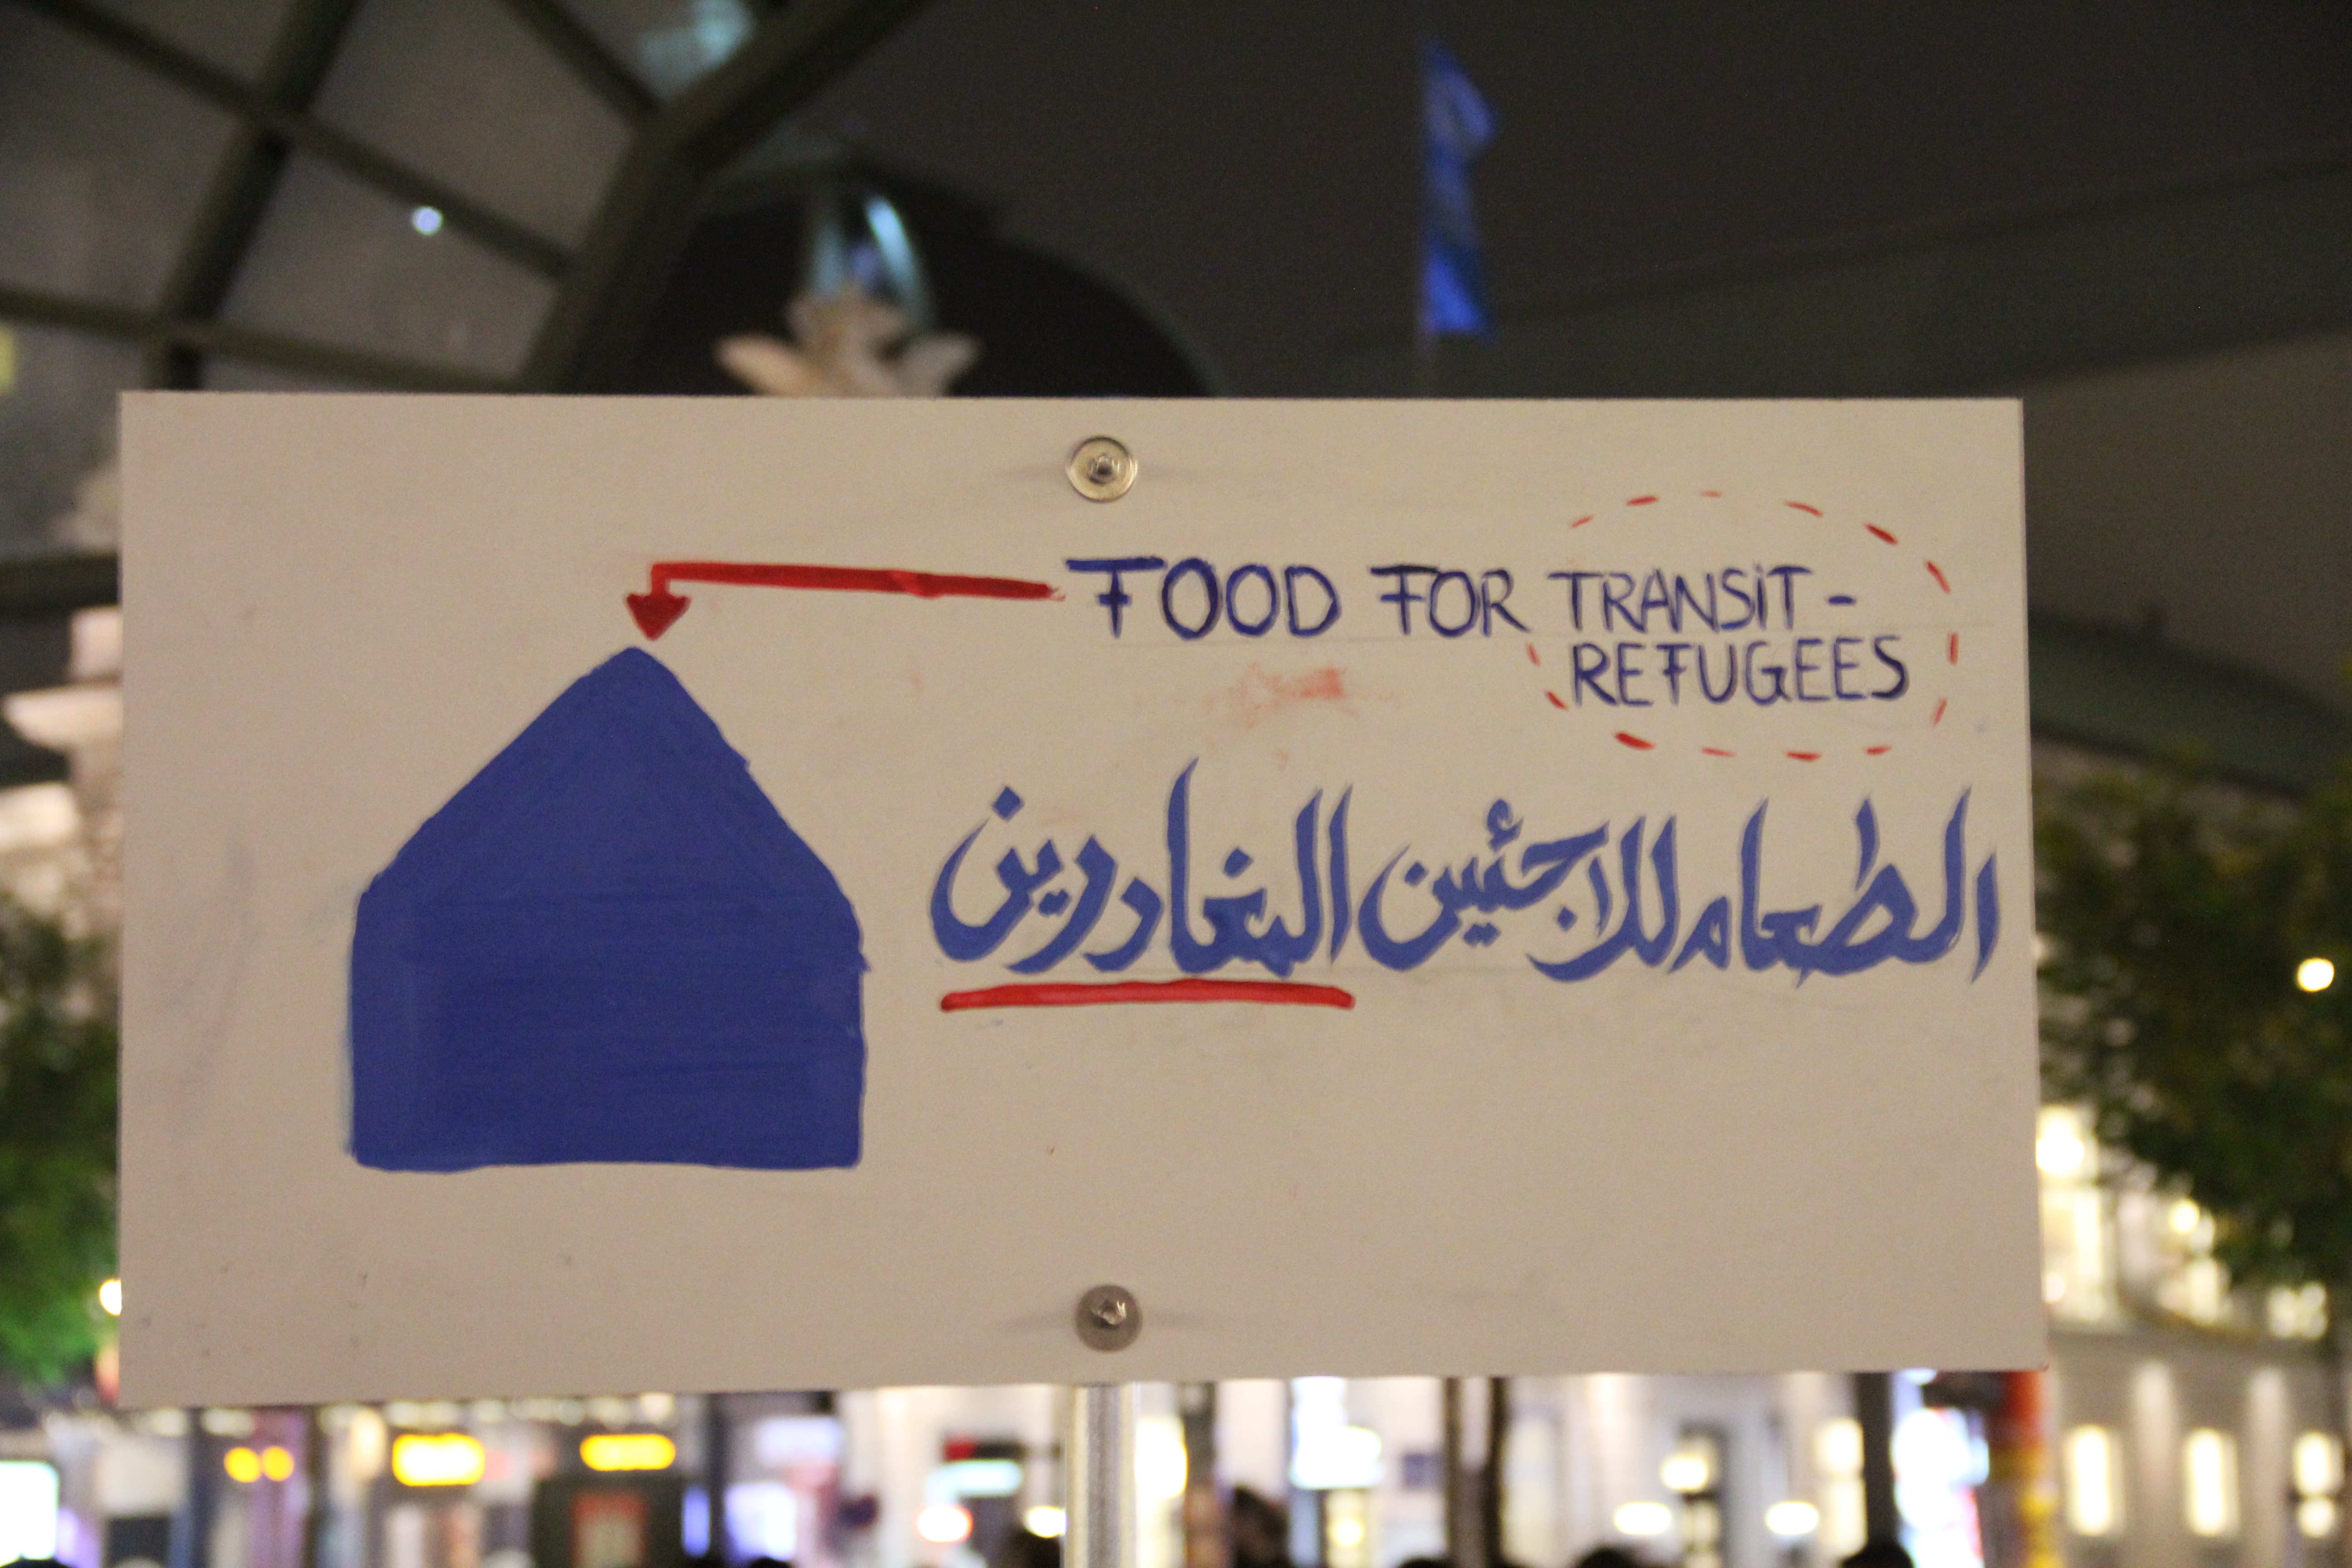 FOOD FOR TRANSIT-
REFUGEES
الطعام للاجئين المغادرين